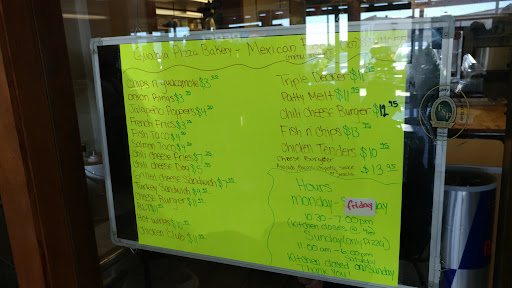 Gualala Pizza Bakery - Mexican
Chips n guacamole $3
Onion Rings $3
Jalapeño Poppers $4
French Fries $3
Fish Taco $4
Salmon Taco $4
Chili Cheese Fries $7
Chili Cheese Dog $5
Grilled cheese Sandwich $7
Turkey Sandwich $9
Cheese Burger $11
BLT $11
Hot wings $10
Chicken Club $11
Triple Decker $14
Patty Melt $11.95
Chili Cheese Burger $12.95
Fish n chips $13
Chicken Tenders $10.95
Cheese Burger
$13.95
Hours
Monday- friday
10:30 - 7:00pm
(Kitchen closes @ 4pm
Sunday (only Pizza)
11:00 am - 6:00pm
Kitchen closed on Saturday Sunday
Thank you!